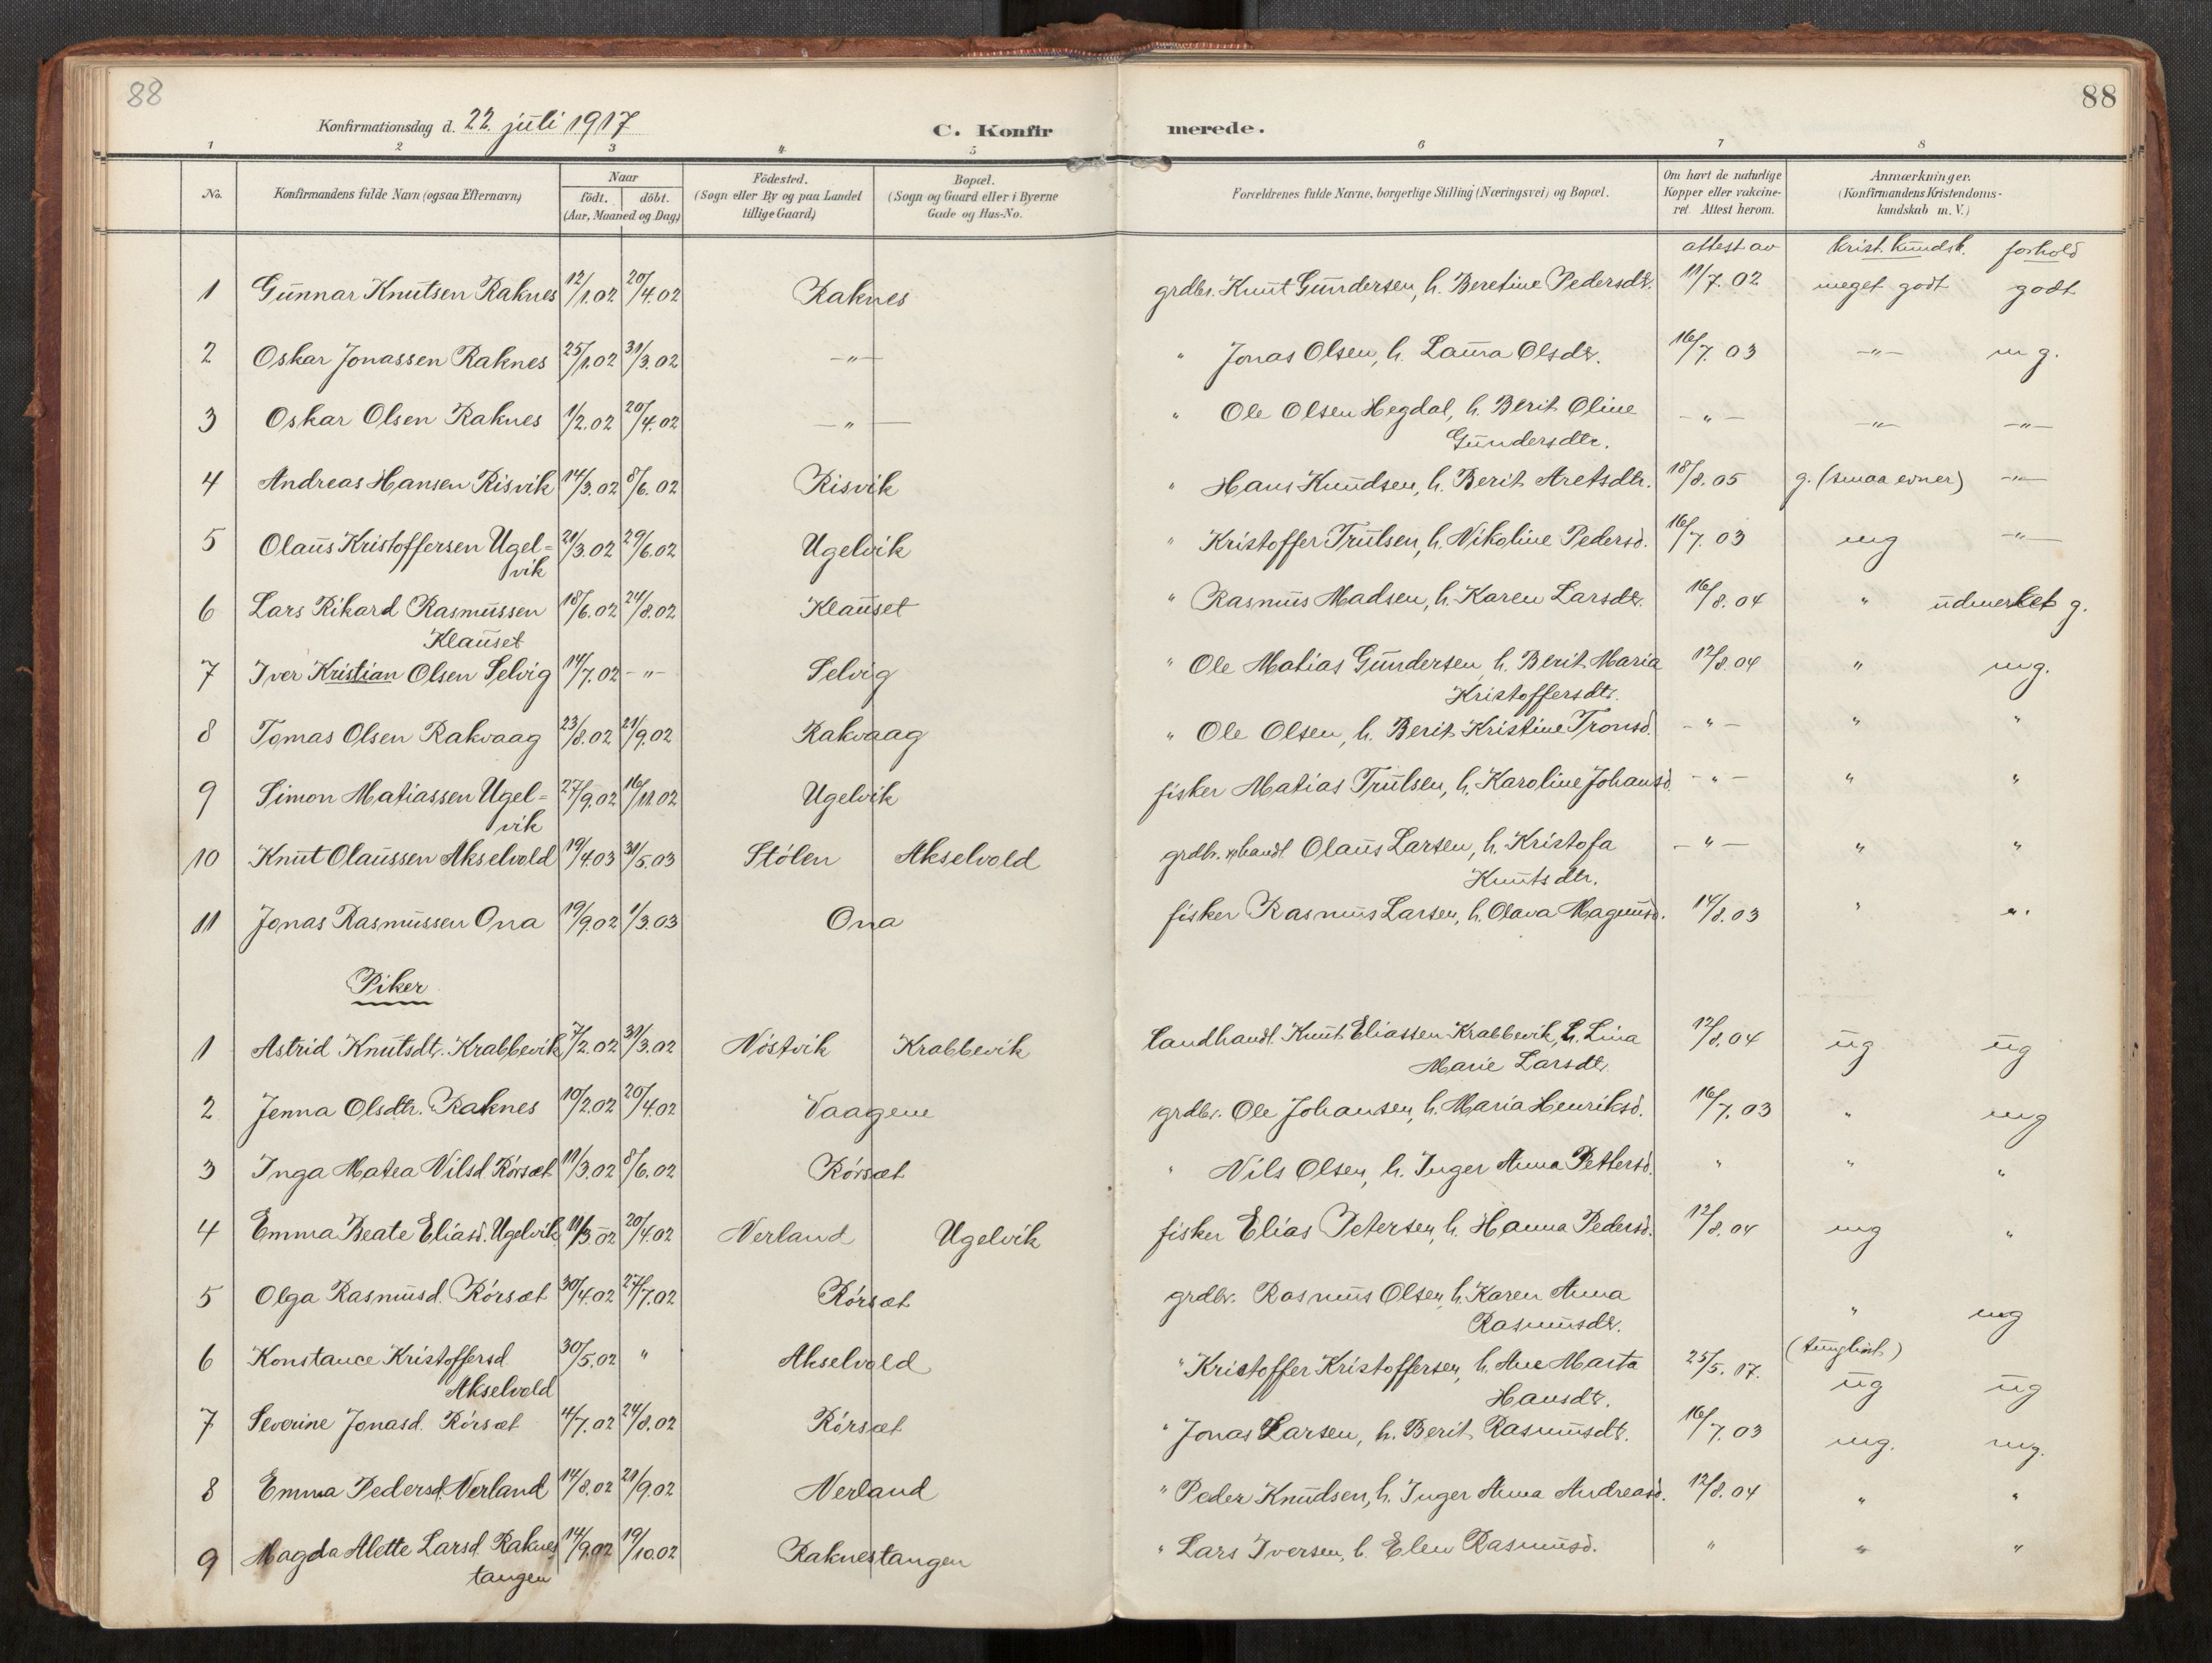 88
88
Konfirmationsdag d. 22. juli 1917
C. Konfirmerede.
1 2 3 4 5 6 7 8
No.
Konfirmandens fulde Navn (ogsaa Efternavn)
Naar
födt. döbt.
(Aar, Maaned og Dag)
Födested.
(Sogn eller By og paa Landet
tillige Gaard)
Bopæl.
(Sogn og Gaard eller i Byerne
Gade og Hus-No.
Forældrenes fulde Navne, borgerlige Stilling (Næringsvei) og Bopæl.
Om havt de naturlige
Kopper eller vakcine-
ret. Attest herom.
Anmærkninger.
(Konfirmandens Kristendoms-
kundskab m. V.)
attest av krist. kundsk. forhold
1 Gunnar Knutsen Raknes 12/1.02 20/4.02 Raknes grdbr. Knut Gundersen, h. Beretine Pedersdtr. 11/7.02 meget godt godt
2 Oskar Jonassen Raknes 25/1.02 31/3.02 -"- " Jonas Olsen, h. Laura Olsdtr. 16/7.03 -"- m g.
3 Oskar Olsen Raknes 1/2.02 20/4.02 -"- " Ole Olsen Hegdal, h. Berit Oline -"- -"- -"-
Gundersdtr.
4 Andreas Hansen Risvik 14/3.02 8/6.02 Risvik " Hans Knudsen, h. Berit Aretsdtr. 18/8.05 g. (smaa evner) -"-
5 Olaus Kristoffersen Ugel= 21/3.02 29/6.02 Ugelvik " Kristoffer Trulsen, h. Nikoline Pedersd. 16/7.03 mg -"-
vik
6 Lars Rikard Rasmussen 18/6.02 24/8.02 Klauset " Rasmus Madsen, h. Karen Larsdtr. 16/8.04 " udmerket g.
Klauset
7 Iver Kristian Olsen Selvig 14/7.02 -"- Selvig " Ole Matias Gundersen, h. Berit Maria 12/8.04 " mg.
Kristoffersdtr.
8 Tomas Olsen Rakvaag 23/8.02 21/9.02 Rakvaag " Ole Olsen, h. Berit Kristine Tronsd. -"- " "
9 Simon Matiassen Ugel= 27/9.02 16/11.02 Ugelvik fisker Matias Trulsen, h. Karoline Johansd. -"- " "
vik
10 Knut Olaussen Akselvold 19/4.03 31/5.03 Stölen Akselvold grdbr. & handl. Olaus Larsen, h. Kristofa -"- " "
Knutsdtr.
11 Jonas Rasmussen Ona 19/9.02 1/3.03 Ona fisker Rasmus Larsen, h. Olava Magnusd. 14/8.03 " "
Piker
1 Astrid Knutsdtr. Krabbevik 7/2.02 31/3.02 Nöstvik Krabbevik landhandl. Knut Eliassen Krabbevik, h. Lina 12/8.04 ug ug
Marie Larsdtr.
2 Jenna Olsdtr. Raknes 10/2.02 20/4.02 Vaagene grdbr. Ole Johansen, h. Maria Henriksd. 16/7.03 " mg
3 Inga Matea Nilsd. Rörsæt 11/3.02 8/6.02 Rörsæt " Nils Olsen, h. Inger Anna Pettersd. " " "
4 Emma Beate Eliasd. Ugelvik 11/3.02 20/4.02 Nerland Ugelvik fisker Elias Petersen, h. Hanna Pedersd. 12/8.04 mg "
5 Olga Rasmusd. Rörsæt 30/4.02 27/7.02 Rörsæt grdbr. Rasmus Olsen, h. Karen Anna " mg
Rasmusdtr.
6 Konstance Kristoffersd. 30/5.02 " Akselvold " Kristoffer Kristoffersen, h. Ane Marta 25/5.17. (tunghørt) ug ug
Akselvold Hansdtr.
7 Severine Jonasd. Rörsæt 4/7.02 24/8.02 Rörsæt " Jonas Larsen, h. Berit Rasmusdtr. 16/7.03 mg. mg.
8 Emma Pedersd. Nerland 14/8.02 21/9.02 Nerland " Peder Knudsen, h. Inger Anna Andreasd. 12/8.04 " "
9 Magda Alette Larsd. Raknes 14/9.02 19/10.02 Raknestangen " Lars Iversen, h. Elen Rasmusd. " " "
tangen